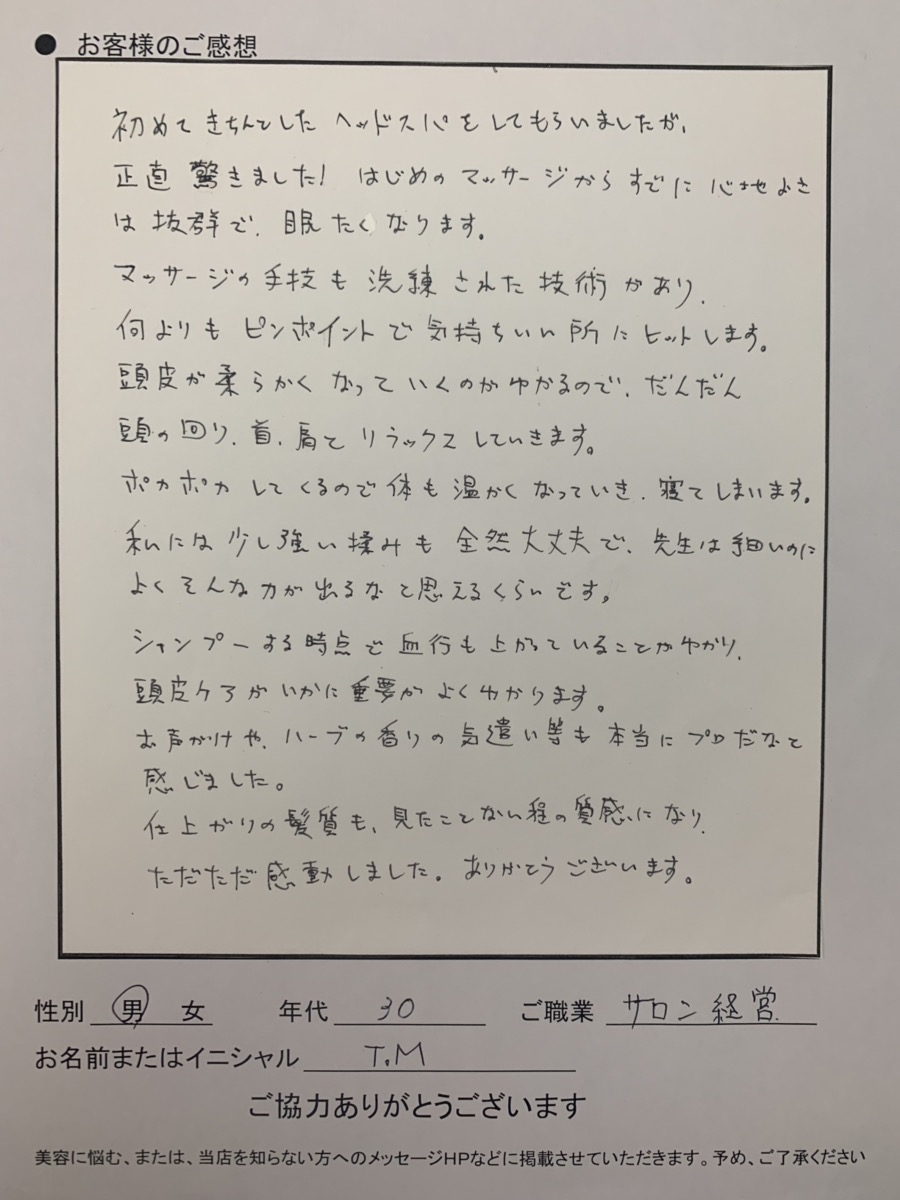 ● お客様のご感想
初めてきちんとしたヘッドスパをしてもらいましたが、
正直驚きました! はじめのマッサージからすでに心地よさ
は抜群で、眠たくなります。
マッサージの手技も洗練された技術があり、
何よりもピンポイントで気持ちいい所にヒットします。
頭皮が柔らかくなっていくのがわかるので、だんだん
頭の回り、首、肩とリラックスしていきます。
ポカポカしてくるので体も温かくなっていき、寝てしまいます。
私には少し強い揉みも全然大丈夫で、先生は細いのに
よくそんな力が出るなと思えるくらいです。
シャンプーする時点で血行も上がっていることがわかり、
頭皮ケアがいかに重要かよくわかります。
お声がけや、ハーブの香りの気遣い等も本当にプロだなと
感じました。
仕上がりの髪質も、見たことない程の質感になり、
ただただ感動しました。ありがとうございます。
性別 男 女 年代 30 ご職業 サロン経営
お名前またはイニシャル T.M
ご協力ありがとうございます
美容に悩む、または、当店を知らない方へのメッセージHPなどに掲載させていただきます。予め、ご了承ください